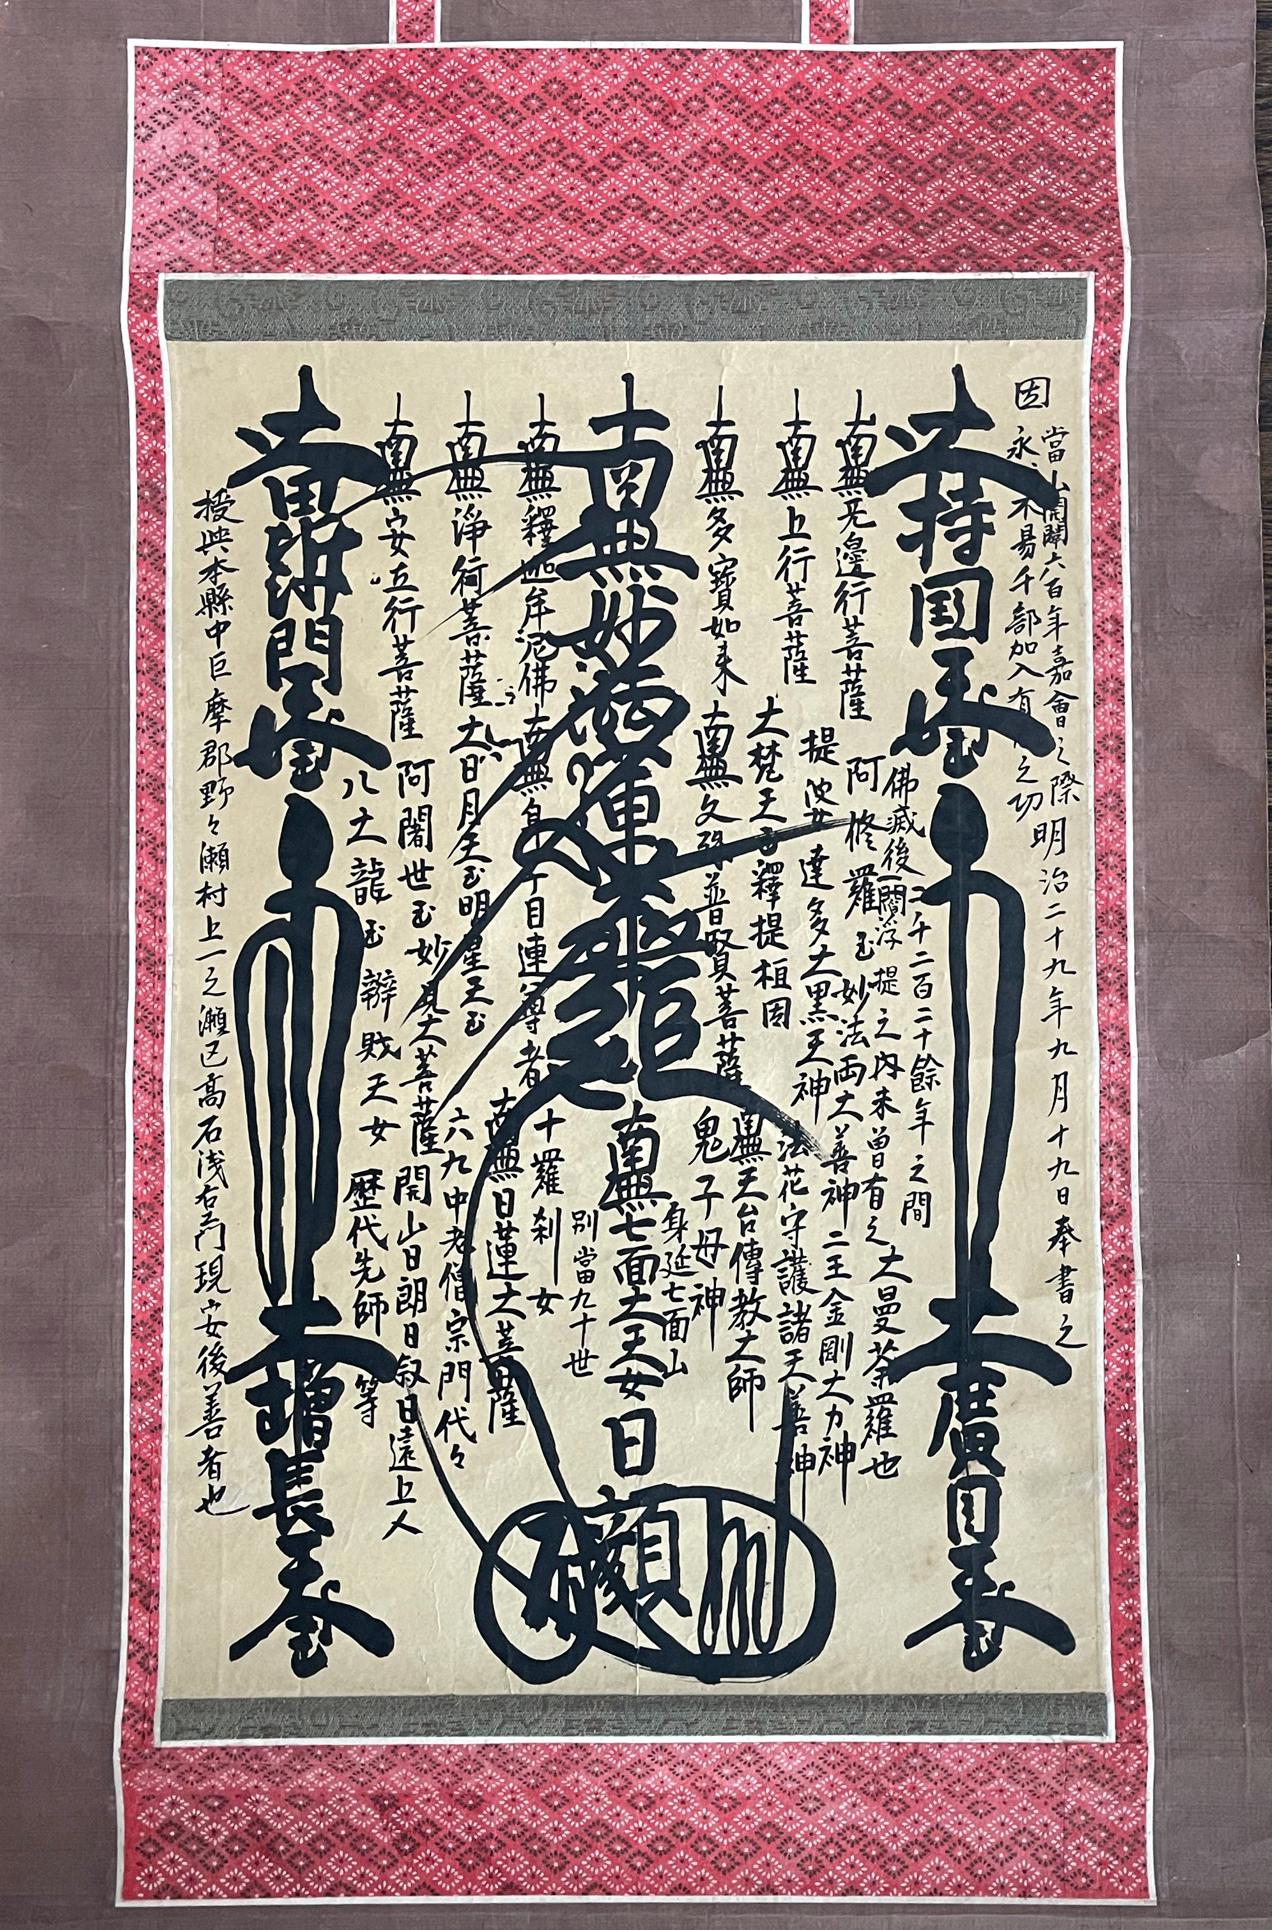 因
當山開闢六百年嘉會之際明治二十九年九月十九日奉書之
永代不易千部加入有 之功
大持国天王
大廣目天王
佛滅後二千二百二十餘年之間
一閻浮提之内未曽有之大曼荼羅也
南無无邊行菩薩
阿修羅王
妙法両大善神
二王金剛大力神
南無上行菩薩
提婆達多
大黒天神
法花守護諸天善神
大梵天王
釋提桓因
南無天台傳教大師
南無多寶如来
南無文殊普賢菩薩
鬼子母神
身延七面山
南無妙法蓮華経
南無七面大天女
日顗
別當九十世
南無釋迦牟尼佛
南無身子目連尊者
十羅刹女
南無淨行菩薩
大日月天王
明星天王
南無日蓮大菩薩
六九中老僧宗門代々
南無安立行菩薩
阿闍世王
妙見大菩薩
開山日朗日叙日遠上人
八大龍王
辯財天女
歴代先師等
大毘沙門天王
大増長天王
授與本縣中巨摩郡野々瀬村上一之瀬区高石浅右衛門現安後善者也